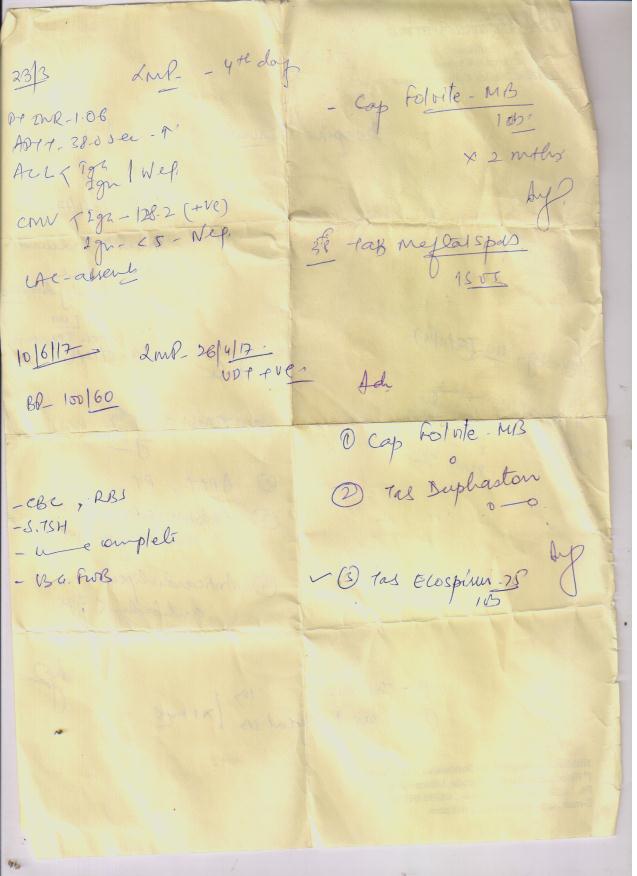 23/3 LMP - 4th day
PT INR-1.06
APTT- 38.0 sec - ↑
ACL < IgG
IgM / Neg.
CMV < IgG - 128.2 (+ve)
IgM - < 5 - Neg.
LAC - absent
- Cap Folvite - MB
1 OD
x 2 mths
Tab Meftal spas
1 SOS
10/6/17 LMP - 26/4/17
UPT +ve
BP - 100/60
Adv
- CBC, RBS
- S. TSH
- Urine complete
① Cap Folvite - MB
② Tab Duphaston
o — o
✓ ③ Tab Ecosprin - 75